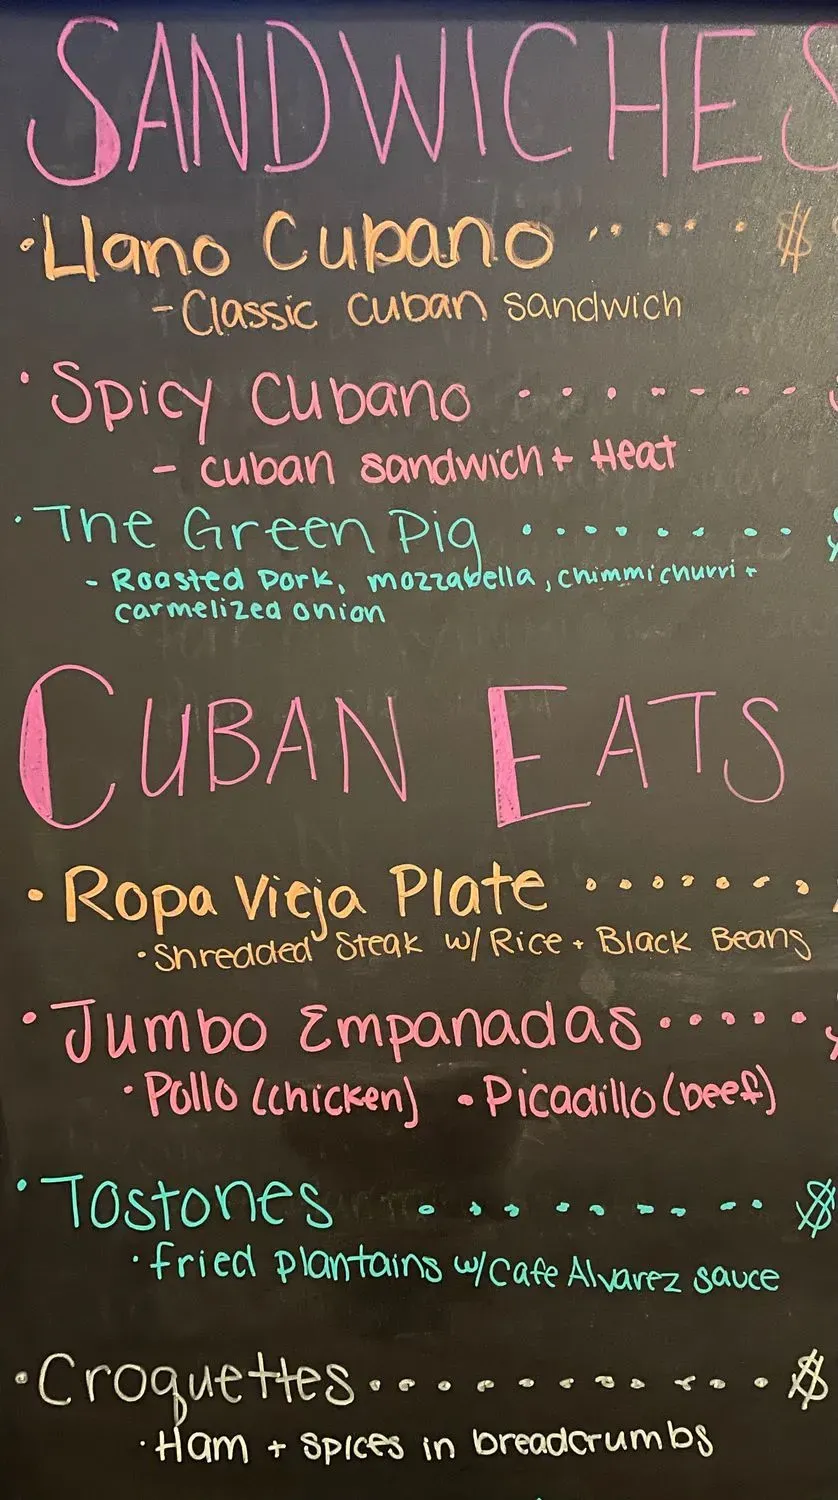 SANDWICHES
• Llano Cubano ..... $
- Classic Cuban sandwich
• Spicy Cubano .......
- Cuban sandwich + Heat
• The Green Pig ......... $
- Roasted Pork, mozzabella, chimmichurri +
carmelized onion
CUBAN EATS
• Ropa Vieja Plate .......
• Shredded Steak w/ Rice + Black Beans
• Jumbo Empanadas ..... $
• Pollo (chicken) • Picadillo (beef)
• Tostones ........ $
• fried plantains w/ Cafe Alvarez sauce
• Croquettes ............ $
• Ham + spices in breadcrumbs